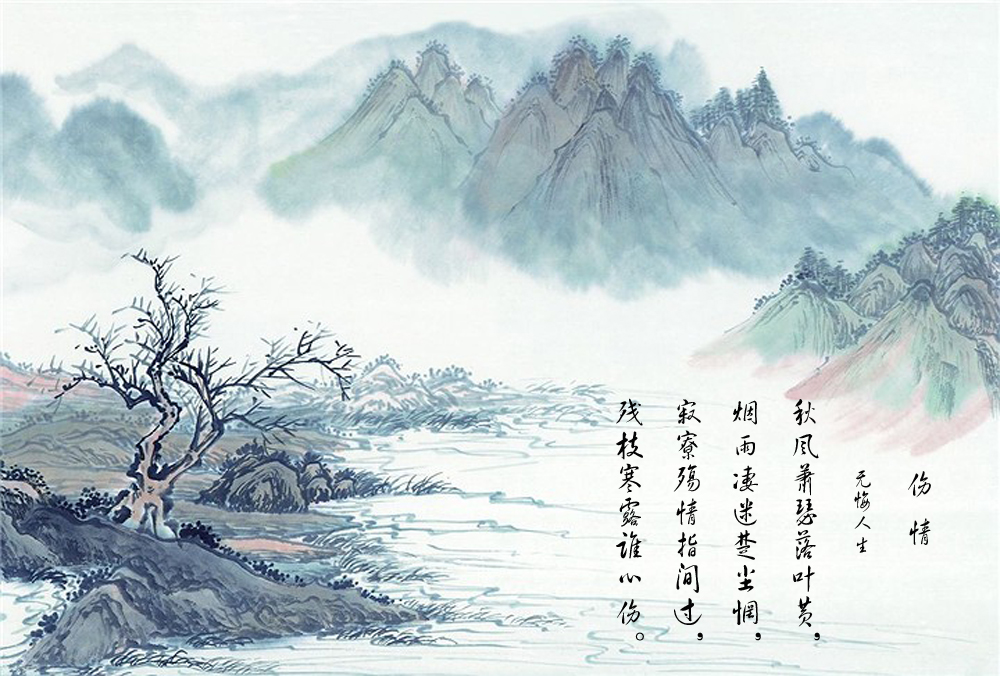 伤情
无悔人生
秋风萧瑟落叶黄，
烟雨凄迷楚尘惘，
寂寥殇情指间过，
残枝寒露谁心伤。